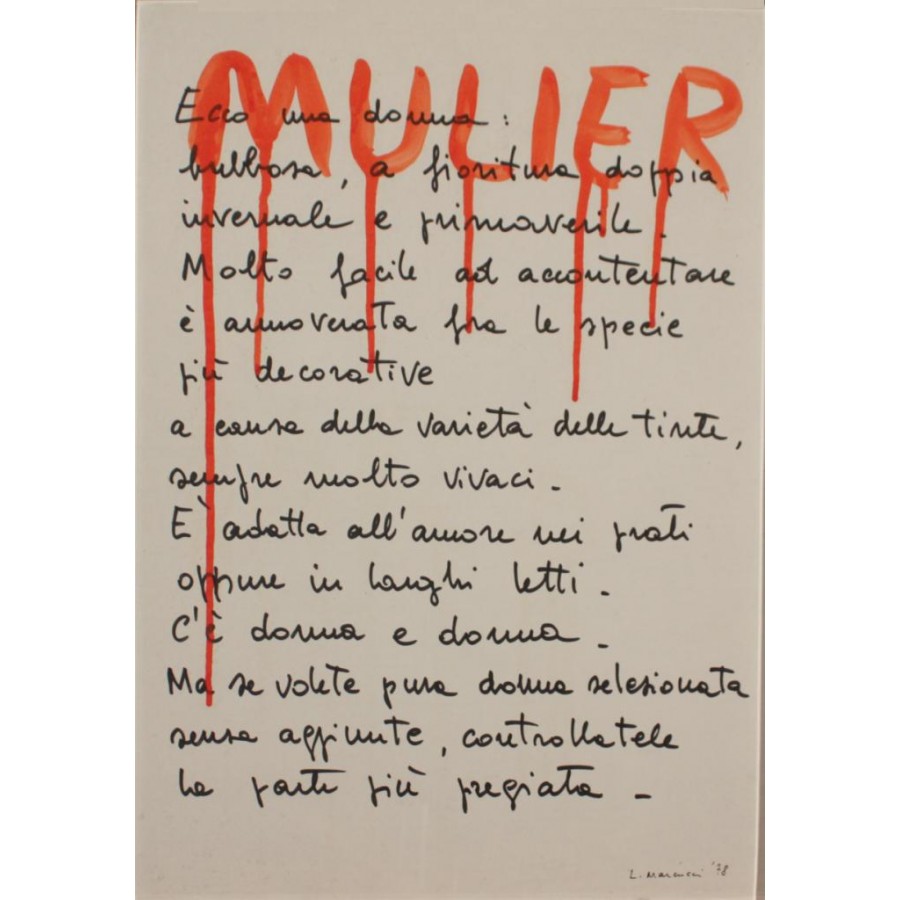 MULIER
Ecco una donna :
bulbosa, a fioritura doppia
invernale e primaverile.
Molto facile ad accontentare
è annoverata fra le specie
più decorative
a causa della varietà delle tinte,
sempre molto vivaci.
E' adatta all'amore nei prati
oppure in larghi letti.
C'è donna e donna.
Ma se volete pura donna selezionata
senza aggiunte, controllatele
la parte più pregiata -
L. Marcucci '78